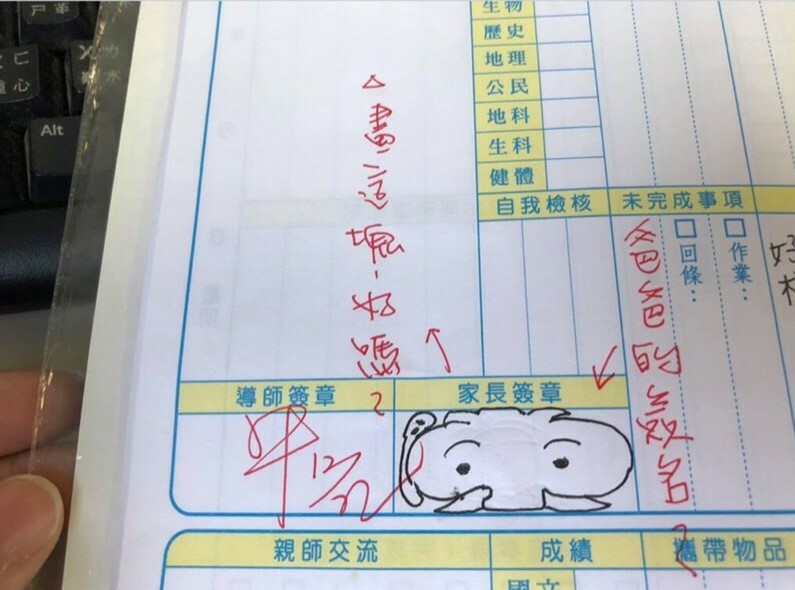 尸 革
心
水
Alt
生物
歷史
地理
公民
地科
生科
健體
自我檢核
未完成事項
□作業：
□回條：
好
△畫這塊，好嗎？
爸爸的簽名？
導師簽章
家長簽章
12/22
親師交流
成績
攜帶物品
國文